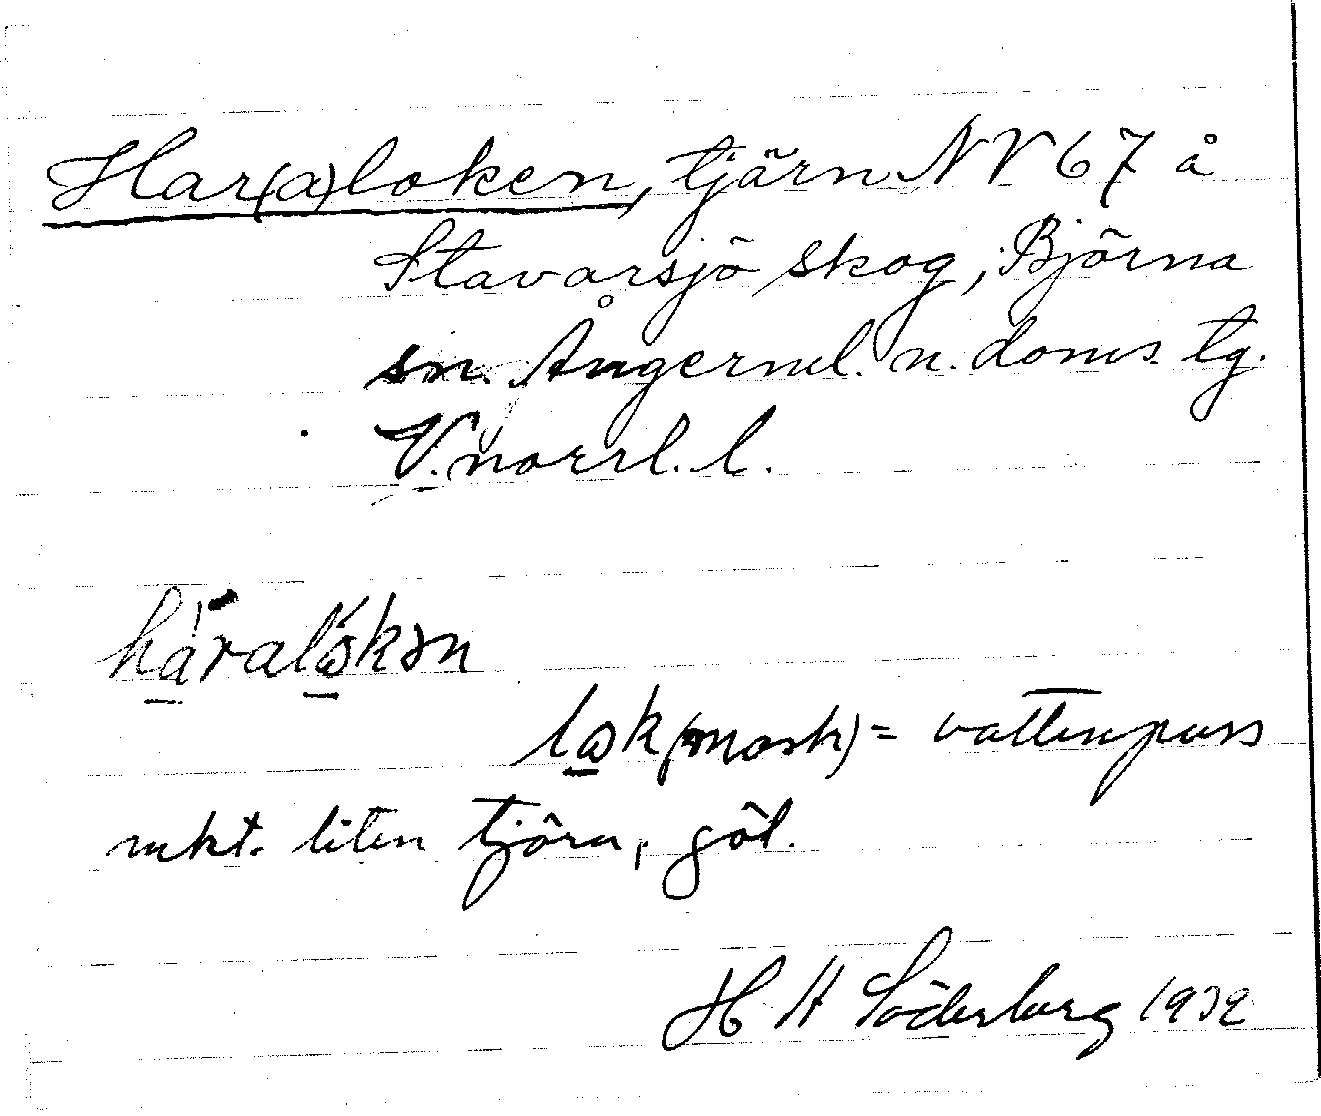 Har(a)loken, tjärn NV 67 å
Stavarsjö skog, Björna
sn. Ångerml. n. doms. tg.
V. norrl. l.
háralókən
lok (mask) = vattenpuss
mkt. liten tjärn, göl.
H A Söderberg 1932